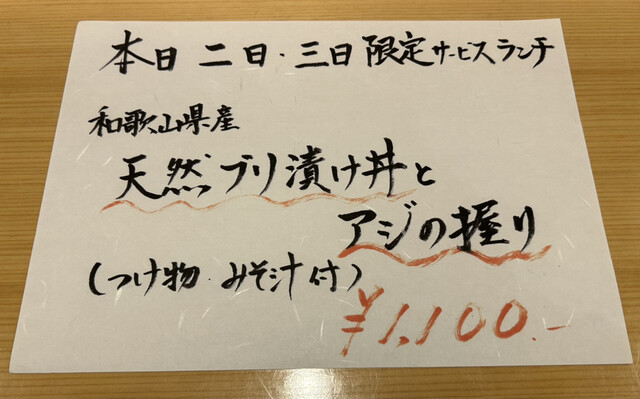 本日 二日・三日限定サービスランチ
和歌山県産
天然ブリ漬け丼と
アジの握り
(つけ物・みそ汁付)
¥1,100.-